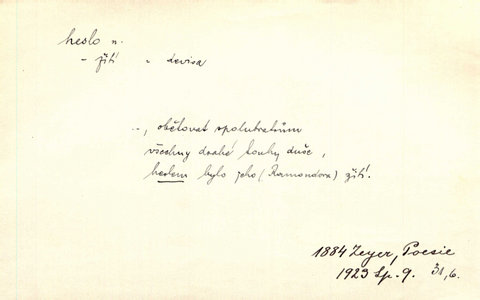 heslo n.
– žití „ devisa
.., obětovat spolubratrům
všechny drahé touhy duše,
heslem bylo jeho (Ramondora) žití.
1884 Zeyer, Poesie
1923 Sp. 9. 31, 6.